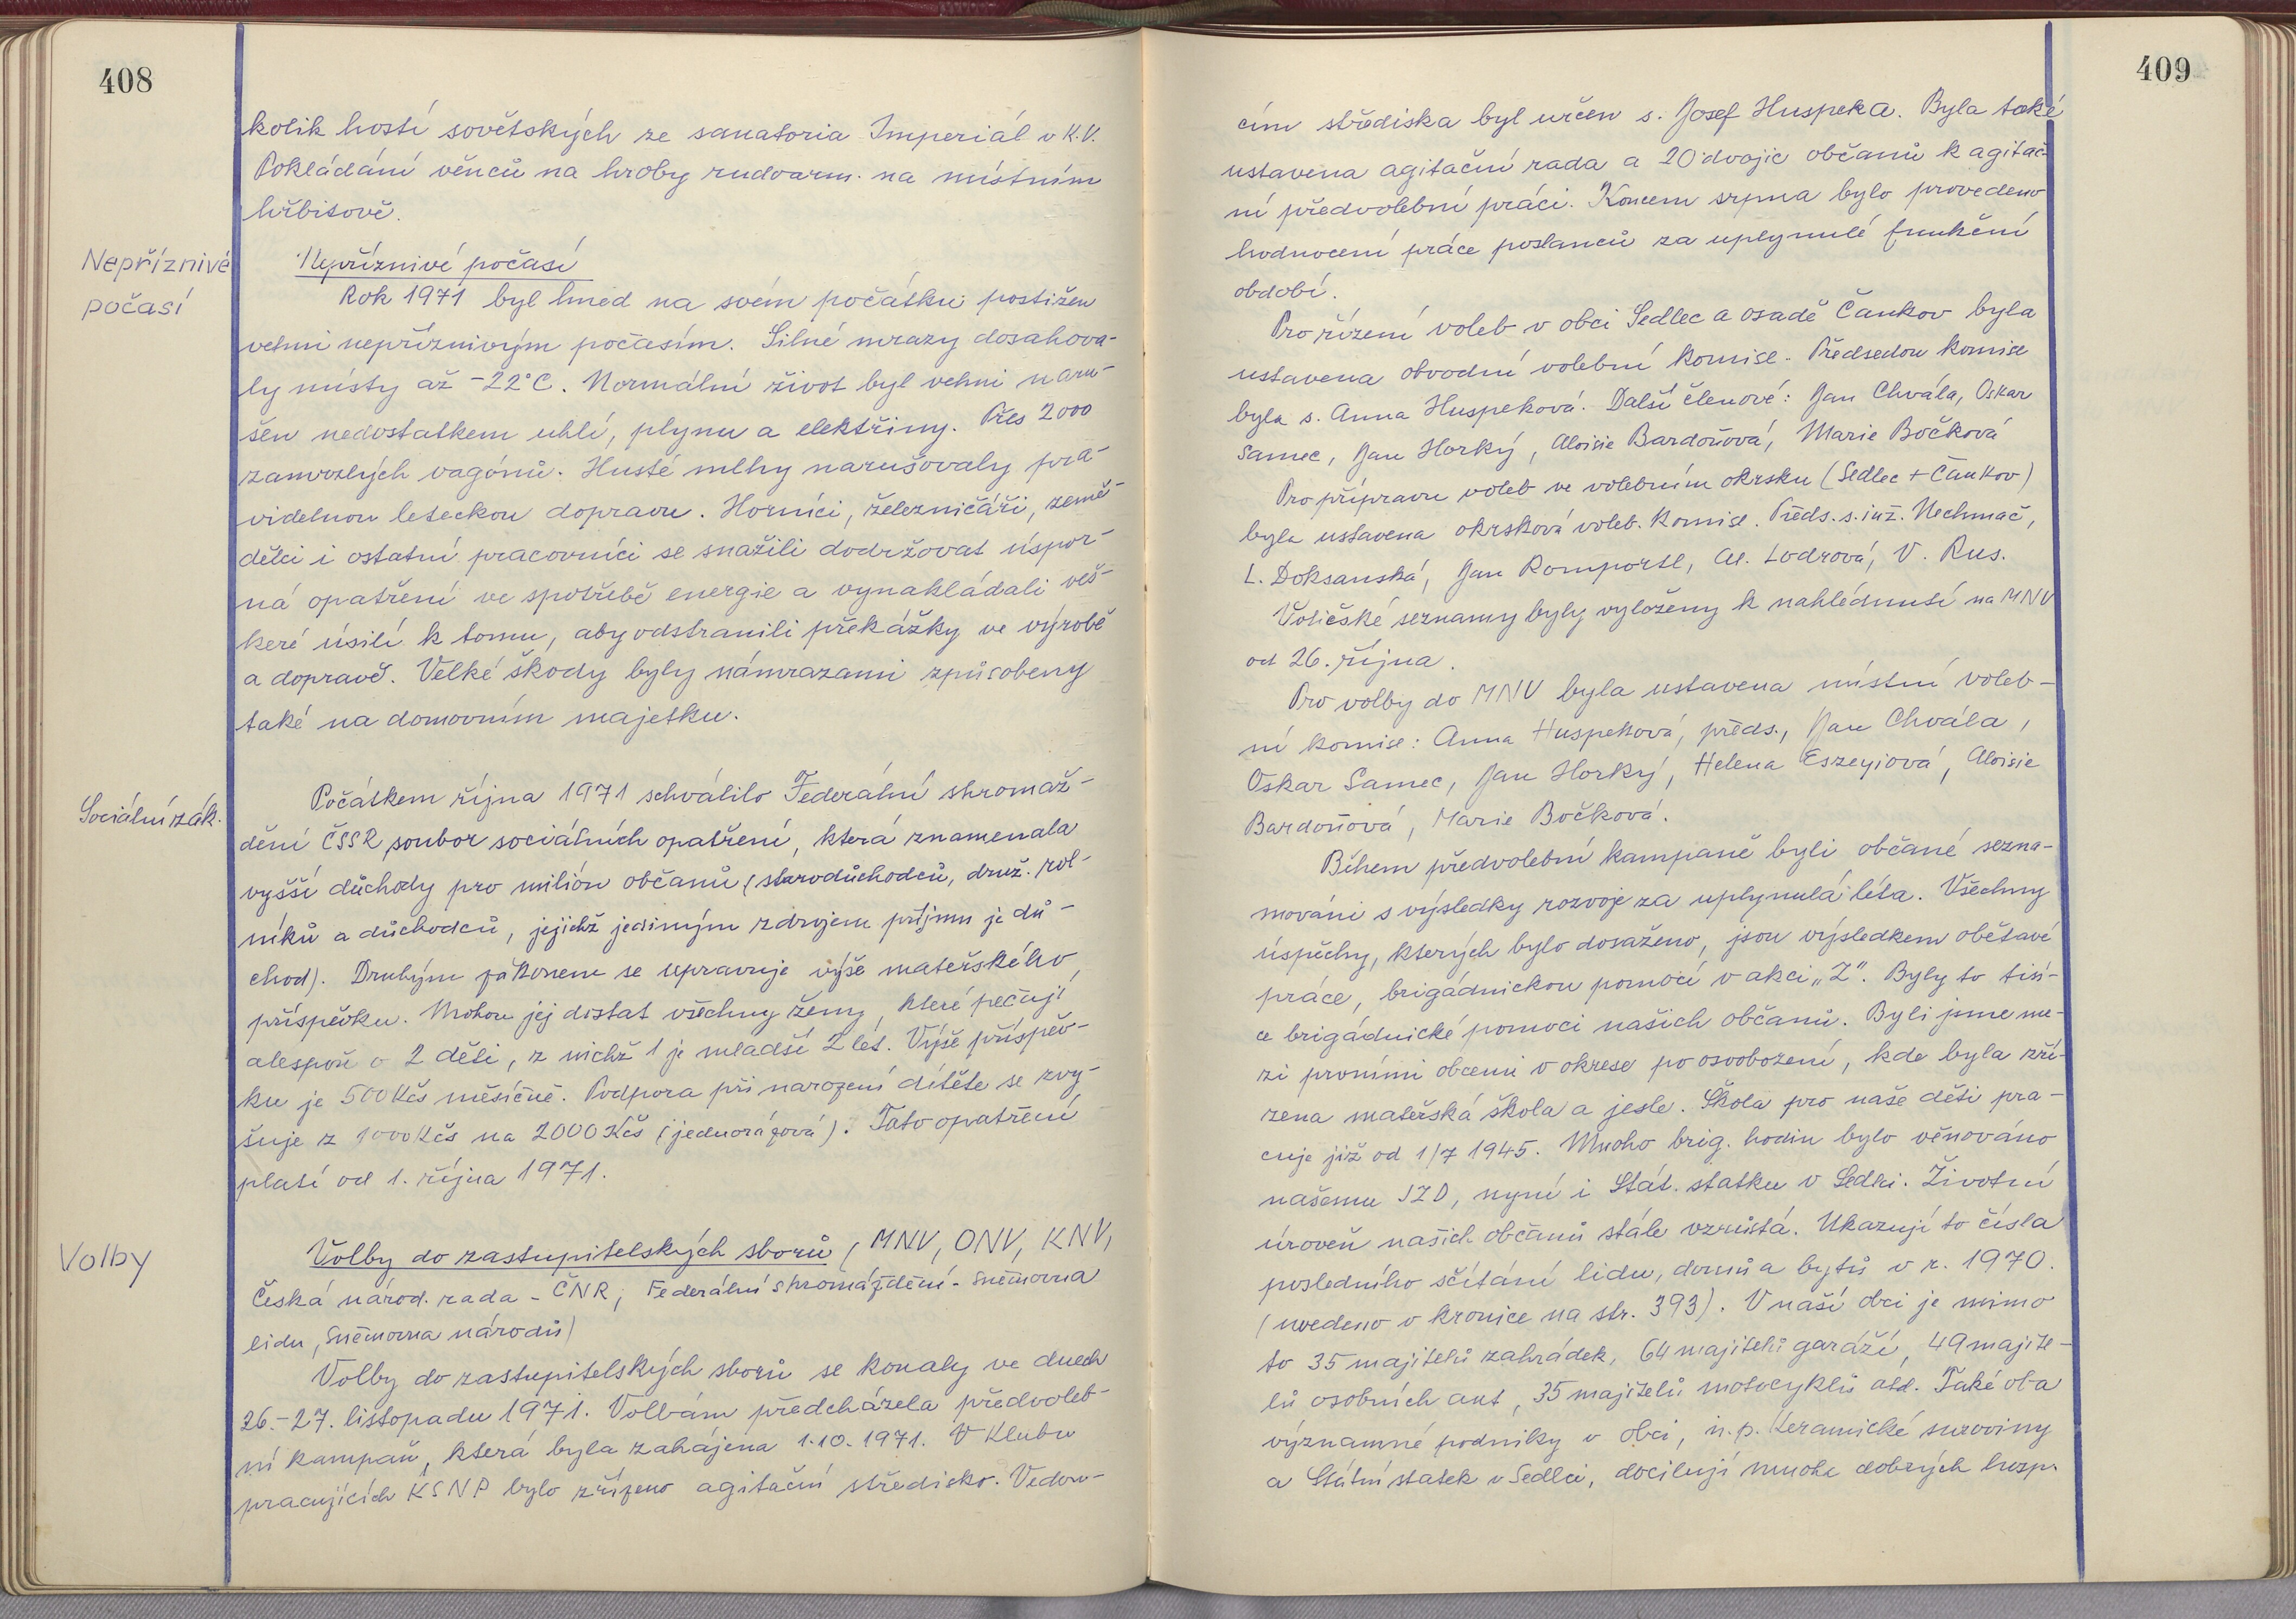 408
kolik hostí sovětských ze sanatoria Imperiál v K.V.
Pokládání věnců na hroby rudoarm. na místním
hřbitově.
Nepříznivé
počasí
Nepříznivé počasí
Rok 1971 byl hned na svém počátku postižen
velmi nepříznivým počasím. Silné mrazy dosahova-
ly místy až -22°C. Normální život byl velmi naru-
šen nedostatkem uhlí, plynu a elektřiny. Přes 2000
zamrzlých vagónů. Husté mlhy narušovaly pra-
videlnou leteckou dopravu. Horníci, železničáři, země-
dělci i ostatní pracovníci se snažili dodržovat úspor-
ná opatření ve spotřebě energie a vynakládali veš-
keré úsilí k tomu, aby odstranili překážky ve výrobě
a dopravě. Velké škody byly námrazami způsobeny
také na domovním majetku.
Sociální zák.
Počátkem října 1971 schválilo Federální shromáž-
dění ČSSR soubor sociálních opatření, která znamenala
vyšší důchody pro milión občanů (starodůchodců, druž. rol-
níků a důchodců, jejichž jediným zdrojem příjmu je dů-
chod). Druhým zákonem se upravuje výše mateřského
příspěvku. Mohou jej dostat všechny ženy, které pečují
alespoň o 2 děti, z nichž 1 je mladší 2 let. Výše příspěv-
ku je 500 Kčs měsíčně. Podpora při narození dítěte se zvy-
šuje z 1000 Kčs na 2000 Kčs (jednorázová). Tato opatření
platí od 1. října 1971.
Volby
Volby do zastupitelských sborů (MNV, ONV, KNV,
Česká národ. rada - ČNR; Federální shromáždění - Sněmovna
lidu, Sněmovna národů)
Volby do zastupitelských sborů se konaly ve dnech
26.-27. listopadu 1971. Volbám předcházela předvoleb-
ní kampaň, která byla zahájena 1.10.1971. V Klubu
pracujících KSNP bylo zřízeno agitační středisko. Vedou-
409
cím střediska byl určen s. Josef Huspeka. Byla také
ustavena agitační rada a 20 dvojic občanů k agitač-
ní předvolební práci. Koncem srpna bylo provedeno
hodnocení práce poslanců za uplynulé funkční
období.
Pro řízení voleb v obci Sedlec a osadě Čankov byla
ustavena obvodní volební komise. Předsedou komise
byla s. Anna Huspeková. Další členové: Jan Chvála, Oskar
Samec, Jan Horký, Aloisie Bardoňová, Marie Bočková
Pro přípravu voleb ve volebním okrsku (Sedlec + Čankov)
byla ustavena okrsková voleb. komise. Předs. s. inž. Nechmač,
L. Doksanská, Jan Romportl, Al. Lodrová, V. Rus.
Voličské seznamy byly vyloženy k nahlédnutí na MNV
od 26. října.
Pro volby do MNV byla ustavena místní voleb-
ní komise: Anna Huspeková, předs., Jan Chvála,
Oskar Samec, Jan Horký, Helena Eszeyiová, Aloisie
Bardoňová, Marie Bočková.
Během předvolební kampaně byli občané sezna-
mováni s výsledky rozvoje za uplynulá léta. Všechny
úspěchy, kterých bylo dosaženo, jsou výsledkem obětavé
práce, brigádnickou pomocí v akci „Z". Byly to tisí-
ce brigádnické pomoci našich občanů. Byli jsme me-
zi prvními obcemi v okrese po osvobození, kde byla zří-
zena mateřská škola a jesle. Škola pro naše děti pra-
cuje již od 1/7 1945. Mnoho brig. hodin bylo věnováno
našemu JZD, nyní i Stát. statku v Sedlci. Životní
úroveň našich občanů stále vzrůstá. Ukazují to čísla
posledního sčítání lidu, domů a bytů v r. 1970.
(uvedeno v kronice na str. 393). V naší obci je mimo
to 35 majitelů zahrádek, 64 majitelů garáží, 49 majite-
lů osobních aut, 35 majitelů motocyklů atd. Také oba
významné podniky v obci, n.p. Keramické suroviny
a Státní statek v Sedlci, docilují mnoha dobrých hosp.